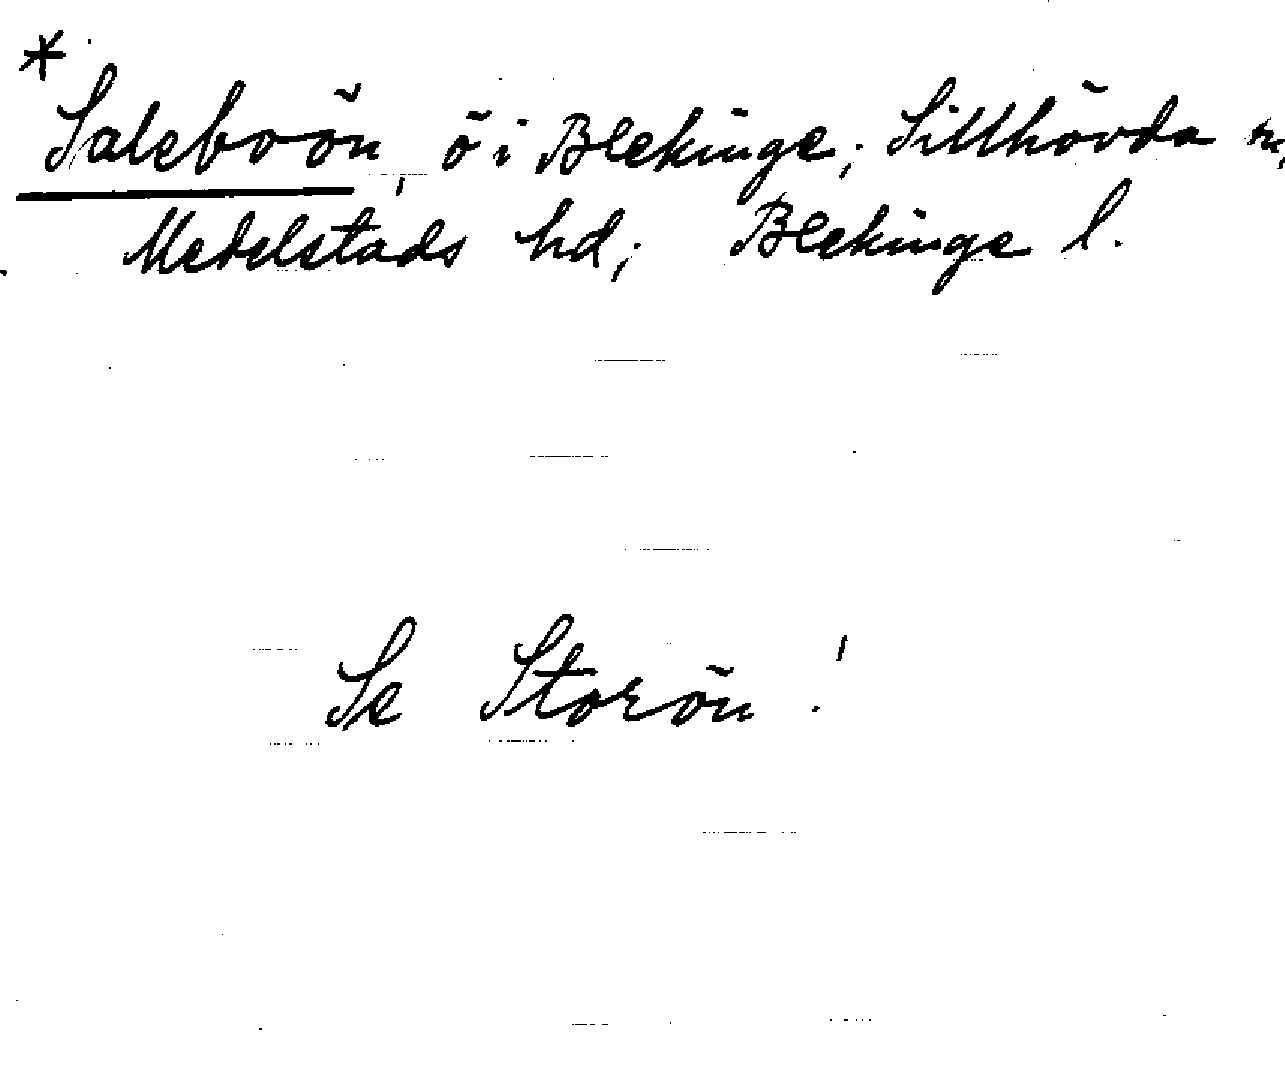 * Saleboön, ö i Blekinge; Sillhövda sn,
Medelstads hd; Blekinge l.
Se Storön!